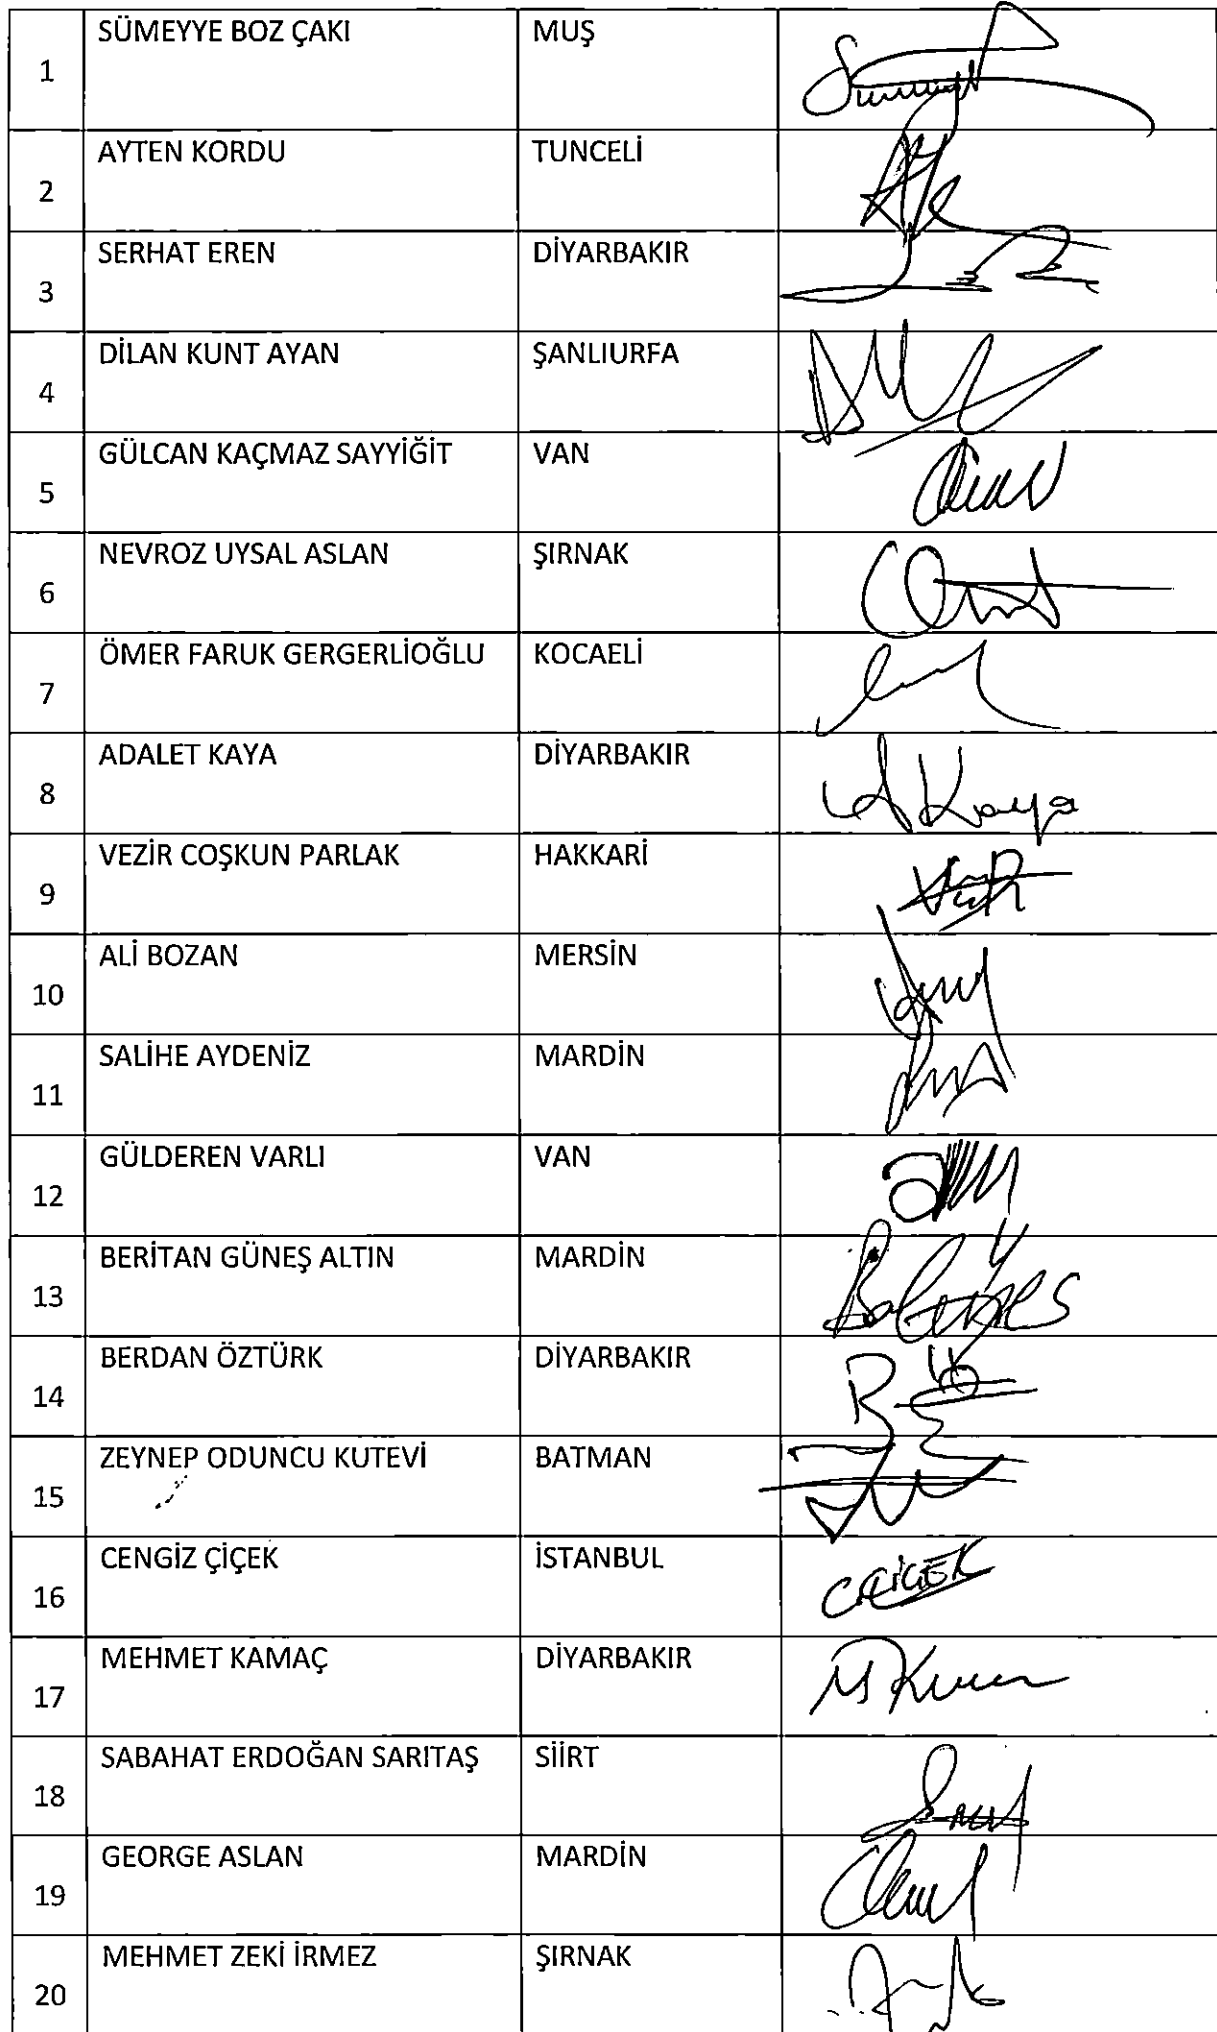 1 SÜMEYYE BOZ ÇAKI MUŞ
2 AYTEN KORDU TUNCELİ
3 SERHAT EREN DİYARBAKIR
4 DİLAN KUNT AYAN ŞANLIURFA
5 GÜLCAN KAÇMAZ SAYYİĞİT VAN
6 NEVROZ UYSAL ASLAN ŞIRNAK
7 ÖMER FARUK GERGERLİOĞLU KOCAELİ
8 ADALET KAYA DİYARBAKIR A Kaya
9 VEZİR COŞKUN PARLAK HAKKARİ
10 ALİ BOZAN MERSİN
11 SALİHE AYDENİZ MARDİN
12 GÜLDEREN VARLI VAN
13 BERİTAN GÜNEŞ ALTIN MARDİN
14 BERDAN ÖZTÜRK DİYARBAKIR
15 ZEYNEP ODUNCU KUTEVİ BATMAN
16 CENGİZ ÇİÇEK İSTANBUL C ÇİÇEK
17 MEHMET KAMAÇ DİYARBAKIR
18 SABAHAT ERDOĞAN SARITAŞ SİİRT
19 GEORGE ASLAN MARDİN
20 MEHMET ZEKİ İRMEZ ŞIRNAK